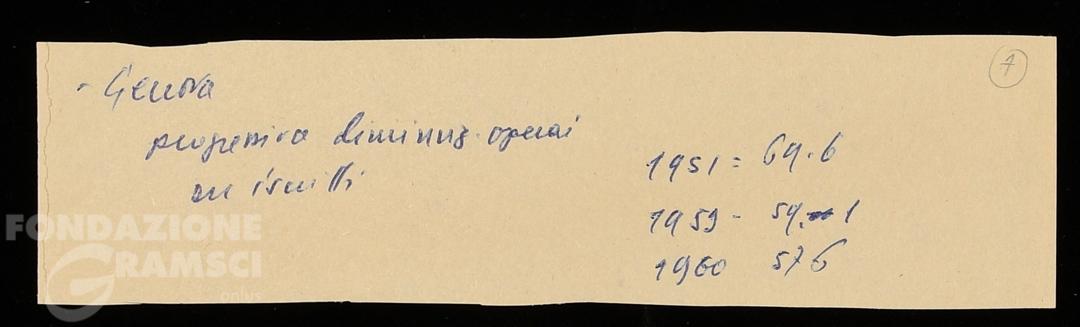 - Genova
progressiva diminuz. operai
su iscritti
1951 = 64.6
1959 - 59.1
1960 57 6
7
FONDAZIONE
GRAMSCI
onlus